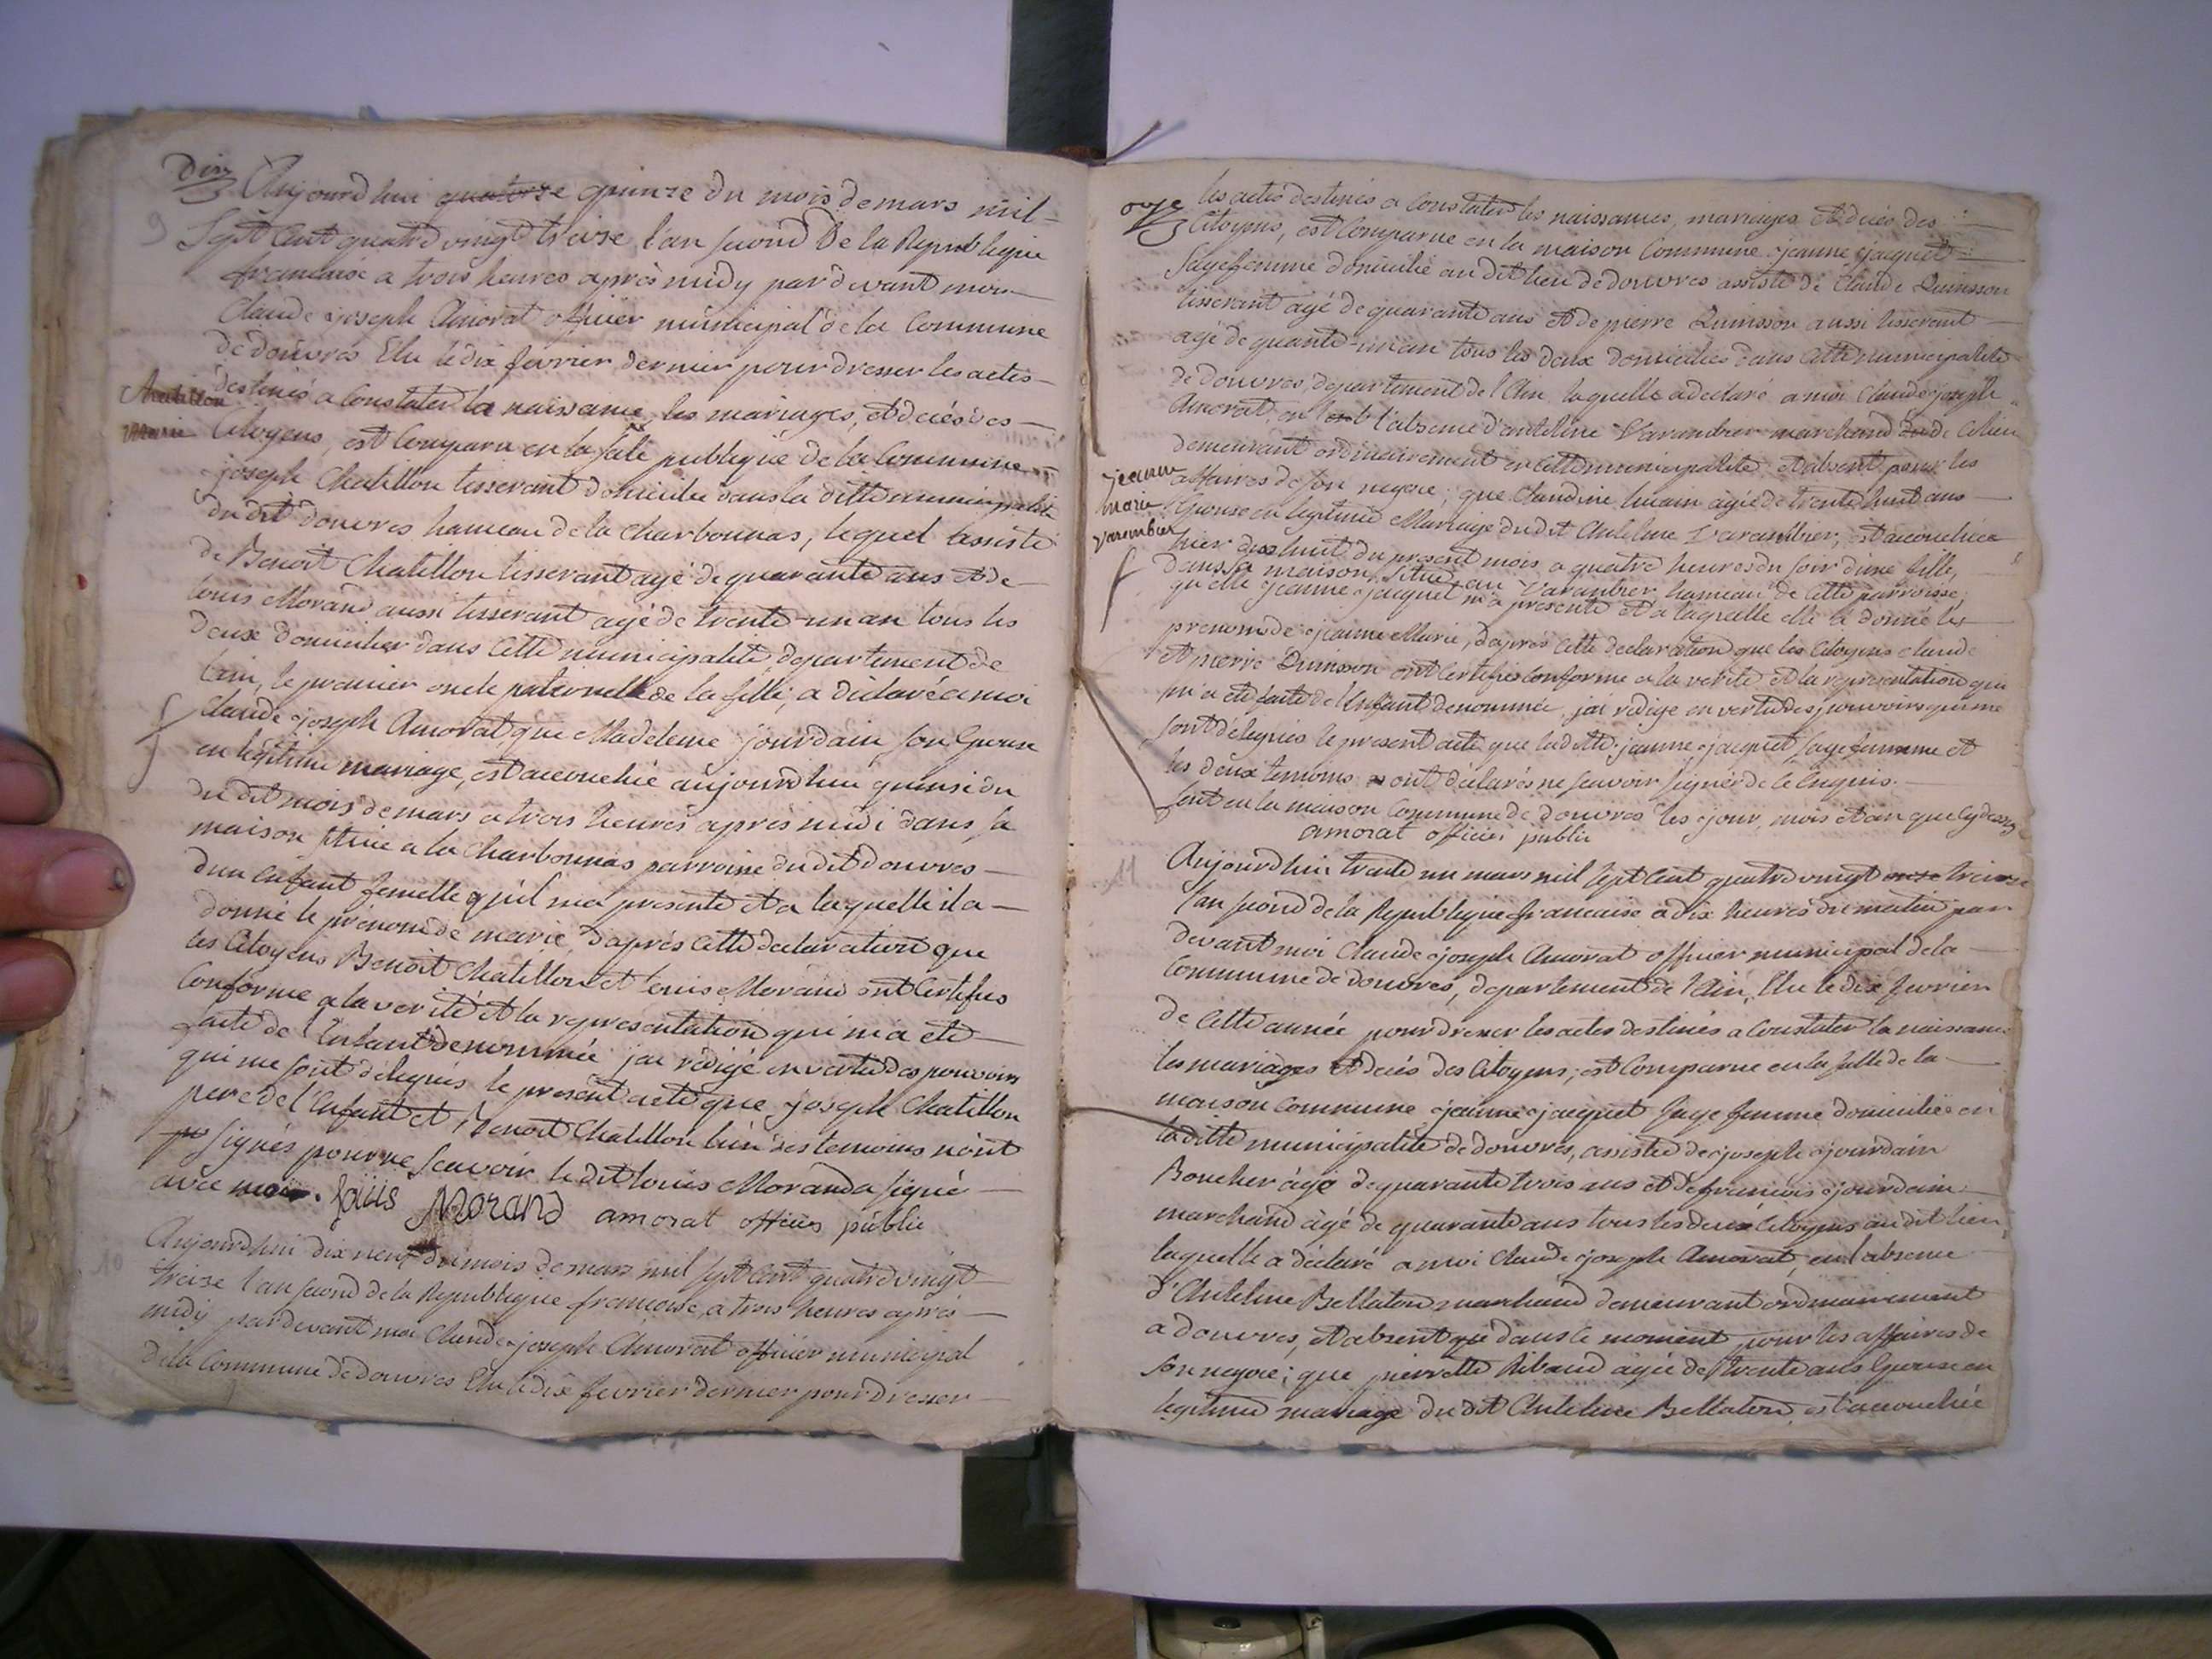 Dix
9
Aujourdhui quatorze quinze du mois de mars mil
Sept Cent quatre vingt treize l'an second De la Republique
francaise a trois heures après midy par devant moi
Claude joseph Amorat officier municipal de la Commune
de douvres Elu le dix fevrier dernier pour dresser les actes
destinés a Constater la naissance, les mariages, et décés des
Chatillon
Marie
Citoyens, est Comparu en la sale publique de la Commune
joseph Chatillon tisserant domicilié dans la ditte municipalité
du dit douvres hameau de la Charbonnas, lequel assisté
de Benoit Chatillon tisserant agé de quarante ans et de
louis Morand aussi tisserant agé de trente un an tous les
deux domiciliez dans cette municipalité departement de
l'ain, le premier oncle paternelle de la fille, a déclaré a moi
Claude joseph Amorat, que Madeleine jourdain son Epouse
en légitime mariage, est accouchée aujourdhui quinse du
du dit mois de mars a trois heures après midi dans sa
maison située a la Charbonnas parroisse du dit douvres
d'un enfant femelle qu'il ma presenté et a laquelle il a
donné le prénom de marie, d'après cette declaration que
les Citoyens Benoit Chatillon et louis Morand ont Certifiés
Conforme a la verité et la representation qui m'a été
faite de l'Enfant denommée jai rédigé en vertu des pouvoirs
qui me sont délegués le present acte que joseph Chatillon
pere de l'Enfant et Benoit Chatillon l'un des temoins n'ont
signés pour ne scavoir le dit louis Morand a signé
avec moi. loüis Morand amorat officier public
10
Aujourdhui dix neuf du mois de mars mil sept Cent quatre vingt
treize l'an second de la Republique francoise, a trois heures après
midy pardevant moi Claude joseph Amorat officier municipal
de la Commune de douvres Elu le dix fevrier dernier pour dresser
onze
les actes destinés a Constater les naissances, mariages et décés des
Citoyens, est Comparue en la maison Commune jeanne jacquet
Sagefemme domicilié au dit lieu de douvres assisté de Claude Quinsson
tisserant agé de quarante ans et de pierre Quinsson aussi tisserant
agé de quarante un an tous les deux domiciliés dans cette municipalité
de douvres, departement de l'Ain, laquelle a declaré a moi Claude joseph
Amorat, en l'absence d'antelme Varambier marchand de Ce lieu
demeurant ordinairement en cette municipalité et absent pour les
jeanne
marie
varembier
affaires de son negoce, que Claudine agée de trente huit ans
Epouse en legitime Mariage du dit Antelme Varambier, est accouchée
hier dix huit du present mois, a quatre heures du soir d'une fille,
dans sa maison, située au Varambier, hameau de cette parroisse,
qu'elle jeanne jacquet m'a presenté et a laquelle elle a donné les
prenoms de jeanne Marie, d'après cette declaration que les Citoyens claude
et pierre Quinsson ont Certifiés Conforme a la verité et la representation qui
m'a eté faite de l'Enfant denommée, jai rédigé en vertu des pouvoirs qui me
sont délegués le present acte que la ditte jeanne jacquet sagefemme et
les deux temoins ont déclarés ne scavoir signer de ce Enquis.
fait en la maison Commune de douvres les jour, mois et an que Cy dessus
amorat officier public
11
Aujourdhui trente un mars mil sept Cent quatre vingt onze treize
l'an second de la Republique francaise a dix heures du matin par
devant moi Claude joseph Amorat officier municipal de la
Commune de douvres, departement de l'Ain, Elu le dix fevrier
de cette année pour dresser les actes destinés a Constater la naissance
les mariages et décés des Citoyens, est Comparue en la salle de la
maison commune jeanne jacquet sage femme domiciliée en
la ditte municipalité de douvres, assistée de joseph jourdain
Boucher âgé de quarante trois ans et de francois jourdain
marchand agé de quarante ans tous les deux Citoyens au dit lieu,
laquelle a déclaré a moi Claude joseph Amorat, en l'absence
d'Antelme Bellaton marchand demeurant ordinairement
a douvres, et absent que dans le moment pour les affaires de
son negoce; que pierrette Ribaud agée de trente ans Epouse en
legitime mariage du dit Antelme Bellaton, est accouchée